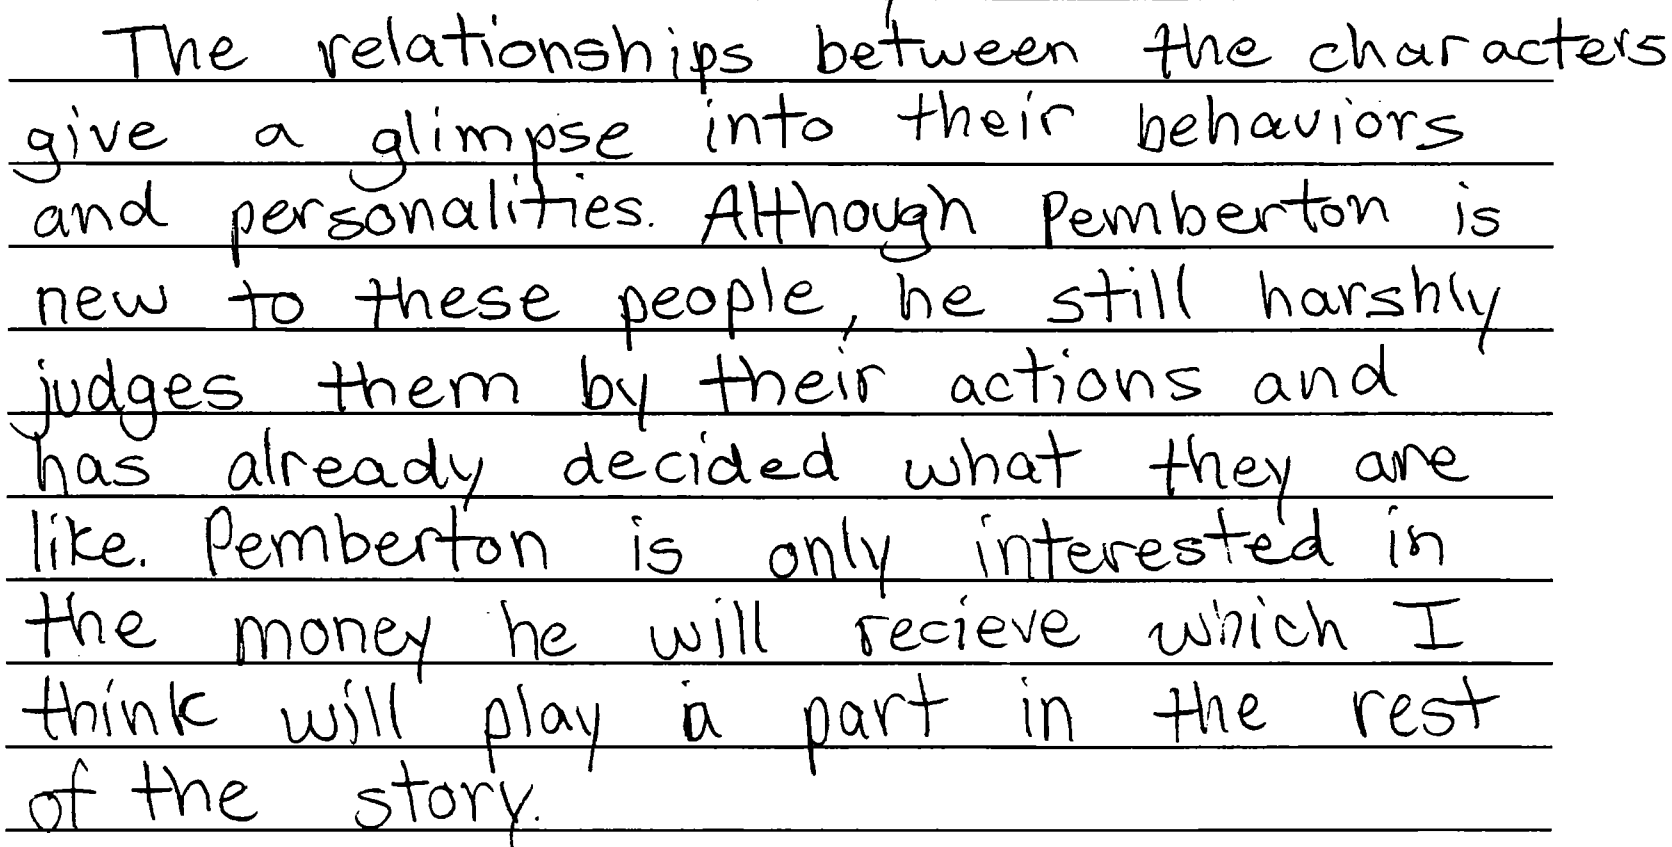 The relationships between the characters
give a glimpse into their behaviors
and personalities. Although Pemberton is
new to these people, he still harshly
judges them by their actions and
has already decided what they are
like. Pemberton is only interested in
the money he will recieve which I
think will play a part in the rest
of the story.